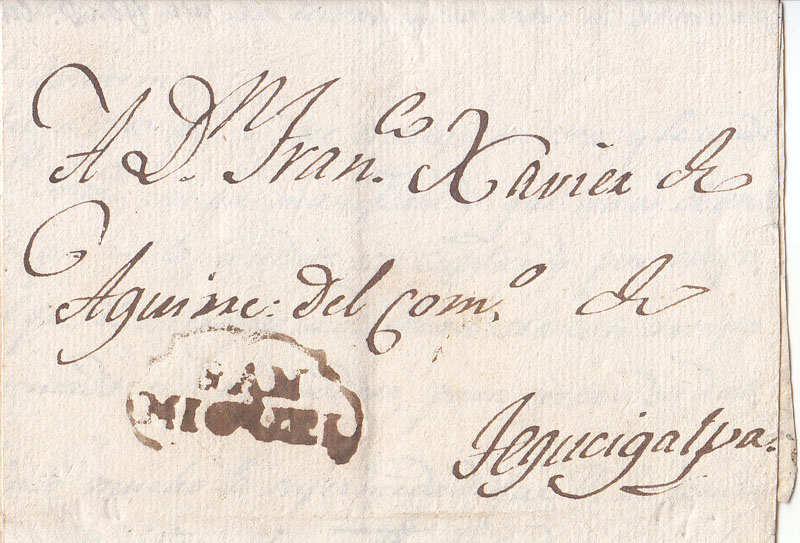 A D.n Fran.co Xavier de
Aguirre: del Com.o de
SAN
MIGUEL
Tegucigalpa.